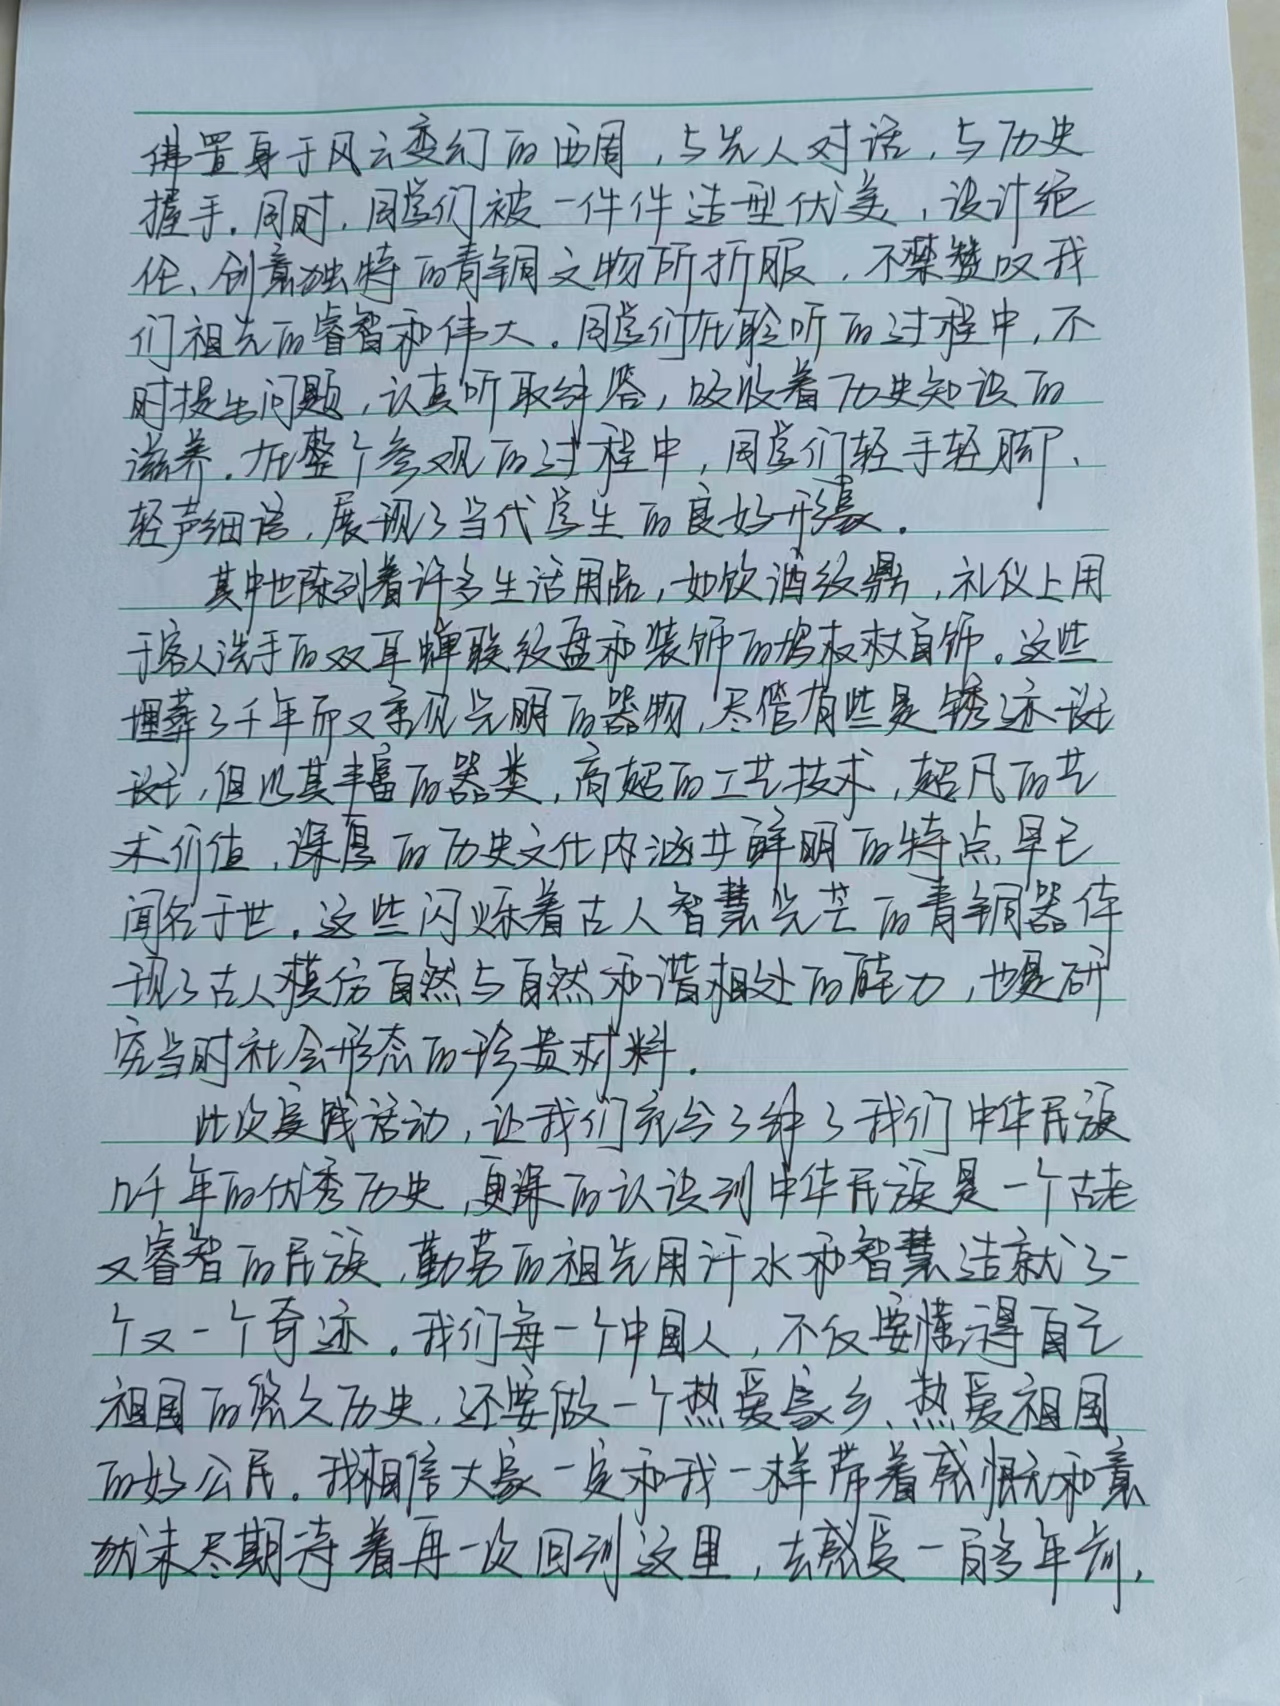 佛置身于风云变幻的西周，与先人对话，与历史
握手。同时，同学们被一件件造型优美，设计绝
伦、创意独特的青铜文物所折服，不禁赞叹我
们祖先的睿智和伟大。同学们在聆听的过程中，不
时提出问题，认真听取解答，吸收着历史知识的
滋养。在整个参观的过程中，同学们轻手轻脚、
轻声细语，展现了当代学生的良好形象。
其中也陈列着许多生活用品，如饮酒纹鼎，礼仪上用
于客人洗手的双耳蝉联纹盘和装饰的权杖首饰。这些
埋葬了千年而又重见光明的器物，尽管有些是锈迹斑
斑，但以其丰富的器类，高超的工艺技术，超凡的艺
术价值，深厚的历史文化内涵并鲜明的特点早已
闻名于世。这些闪烁着古人智慧光芒的青铜器体
现了古人模仿自然与自然和谐相处的能力，也是研
究当时社会形态的珍贵材料。
此次实践活动，让我们充分了解了我们中华民族
几千年的优秀历史，更深的认识到中华民族是一个古老
又睿智的民族，勤劳的祖先用汗水和智慧造就了一
个又一个奇迹。我们每一个中国人，不仅要懂得自己
祖国的悠久历史，还要做一个热爱家乡、热爱祖国
的好公民。我相信大家一定和我一样带着感慨和意
犹未尽期待着再一次回到这里，去感受一百多年前，